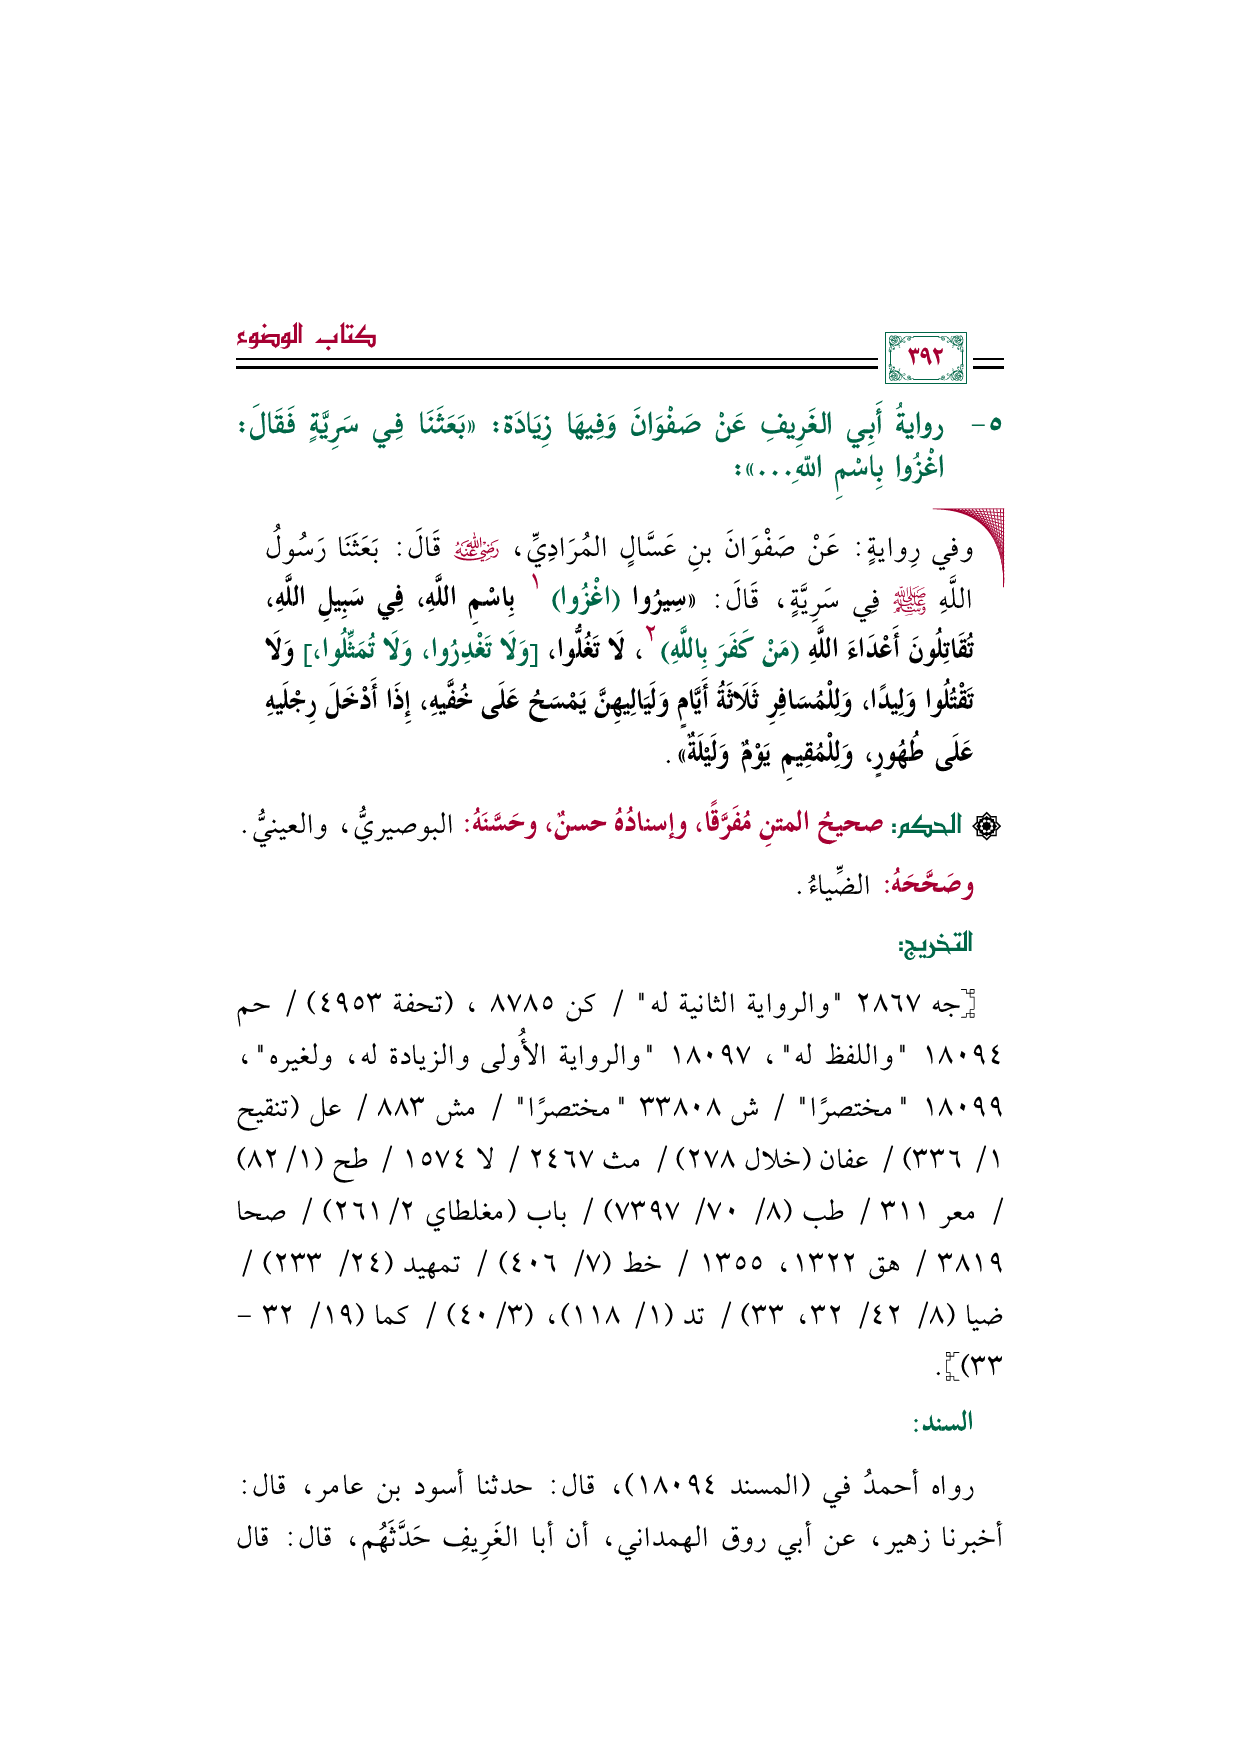 كتاب الوضوء
٣٩٢
٥- روايةُ أَبِي الغَرِيفِ عَنْ صَفْوَانَ وَفِيهَا زِيَادَة: «بَعَثَنَا فِي سَرِيَّةٍ فَقَالَ:
اغْزُوا بِاسْمِ اللهِ...»:
وفي رِوايةٍ: عَنْ صَفْوَانَ بنِ عَسَّالٍ المُرَادِيِّ، رضي الله عنه قَالَ: بَعَثَنَا رَسُولُ
اللَّهِ ﷺ فِي سَرِيَّةٍ، قَالَ: «سِيرُوا (اغْزُوا) ١ بِاسْمِ اللَّهِ، فِي سَبِيلِ اللَّهِ،
تُقَاتِلُونَ أَعْدَاءَ اللَّهِ (مَنْ كَفَرَ بِاللَّهِ) ٢، لَا تَغُلُّوا، [وَلَا تَغْدِرُوا، وَلَا تُمَثِّلُوا،] وَلَا
تَقْتُلُوا وَلِيدًا، وَلِلْمُسَافِرِ ثَلَاثَةُ أَيَّامٍ وَلَيَالِيهِنَّ يَمْسَحُ عَلَى خُفَّيهِ، إِذَا أَدْخَلَ رِجْلَيهِ
عَلَى طُهُورٍ، وَلِلْمُقِيمِ يَوْمٌ وَلَيْلَةٌ».
الحكم: صحيحُ المتنِ مُفَرَّقًا، وإسنادُهُ حسنٌ، وحَسَّنَهُ: البوصيريُّ، والعينيُّ.
وصَحَّحَهُ: الضِّياءُ.
التخريج:
[جه ٢٨٦٧ "والرواية الثانية له" / كن ٨٧٨٥ ، (تحفة ٤٩٥٣) / حم
١٨٠٩٤ "واللفظ له"، ١٨٠٩٧ "والرواية الأُولى والزيادة له، ولغيره"،
١٨٠٩٩ "مختصرًا" / ش ٣٣٨٠٨ "مختصرًا" / مش ٨٨٣ / عل (تنقيح
١/ ٣٣٦) / عفان (خلال ٢٧٨) / مث ٢٤٦٧ / لا ١٥٧٤ / طح (١/ ٨٢)
/ معر ٣١١ / طب (٨/ ٧٠/ ٧٣٩٧) / باب (مغلطاي ٢/ ٢٦١) / صحا
٣٨١٩ / هق ١٣٢٢، ١٣٥٥ / خط (٧/ ٤٠٦) / تمهيد (٢٤/ ٢٣٣) /
ضيا (٨/ ٤٢/ ٣٢، ٣٣) / تد (١/ ١١٨)، (٣/ ٤٠) / كما (١٩/ ٣٢ -
٣٣)].
السند:
رواه أحمدُ في (المسند ١٨٠٩٤)، قال: حدثنا أسود بن عامر، قال:
أخبرنا زهير، عن أبي روق الهمداني، أن أبا الغَرِيفِ حَدَّثَهُم، قال: قال